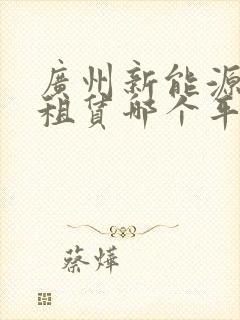 廣州新能源
租賃哪个年
蔡燁